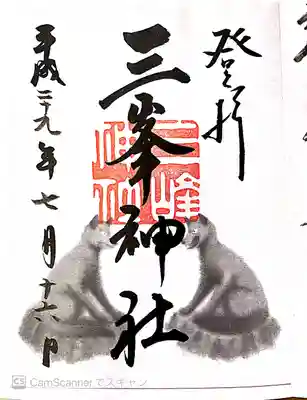 登拝
三峯神社
三峰神社
平成二十九年七月十六日
CS CamScannerでスキャン